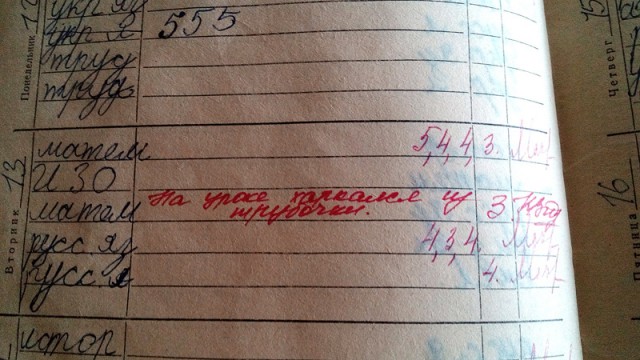 12
Понедельник
укр яз
укр я 555
труд
труд
13
Вторник
матем 5,4,4, 3.
ИЗО
матем На уроке харкался из трубочки. 3
русс. яз 4,3,4.
русс. я 4.
истор
15
Четверг
16
Пятница